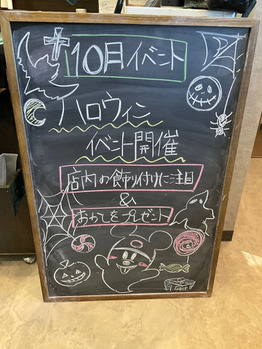 10月イベント
ハロウィン
イベント開催
店内の飾り付けに注目
&
おかしをプレゼント